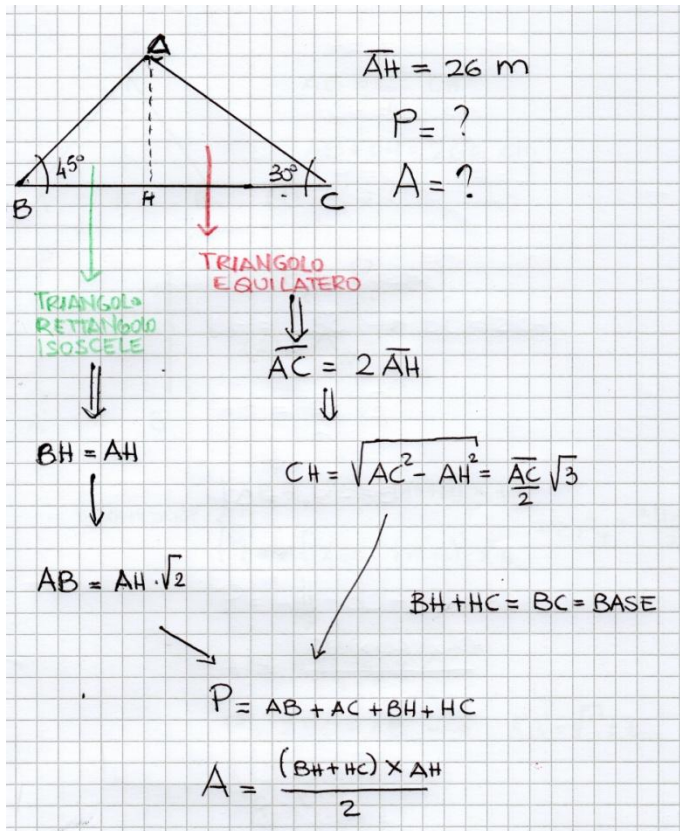 A
AH = 26 m
P = ?
A = ?
45°
30°
B
H
C
TRIANGOLO
EQUILATERO
TRIANGOLO
RETTANGOLO
ISOSCELE
AC = 2 AH
BH = AH
CH = √(AC² - AH²) = AC/2 √3
AB = AH · √2
BH + HC = BC = BASE
P = AB + AC + BH + HC
A = (BH + HC) × AH
2